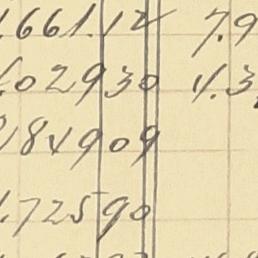 .661.12 7.9
.02930 4.3
184909
1.72590